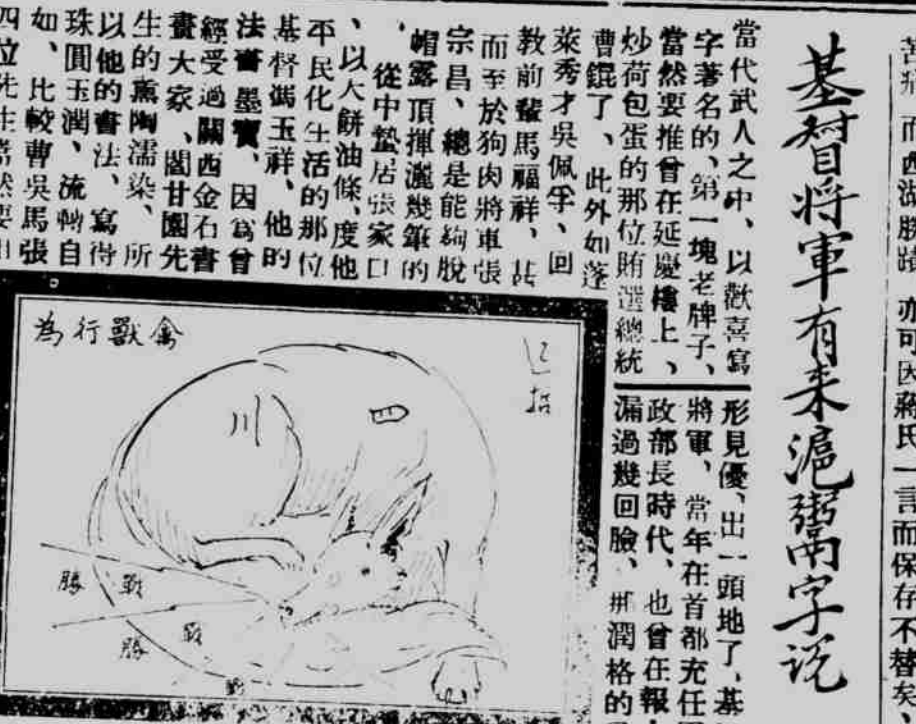 而西湖勝蹟 亦可因蔣氏一言而保存不替矣、
基督將軍有来滬鬻字说
當代武人之中、以歡喜寫
字著名的、第一塊老牌子、
當然要推曾在延慶樓上、
炒荷包蛋的那位賄選總統
曹錕了、此外如蓬
萊秀才吳佩孚、回
教前輩馬福祥、甚
而至於狗肉將車張
宗昌、總是能夠脫
帽露頂揮灑幾筆的
、從中蟄居張家口
、以大餅油條、度他
平民化生活的那位
基督馮玉祥、他的
法書墨寶、因爲曾
經受過關西金石書
畫大家、閻甘園先
生的薰陶濡染、所
以他的書法、寫得
珠圓玉潤、流轉自
如、比較曹吳馬張
四位先生當然要
形見優、出一頭地了、基
將軍、當年在首都充任
政部長時代、也曾在報
漏過幾回臉、那潤格的
禽獸行為
四
川
戰勝
戰勝